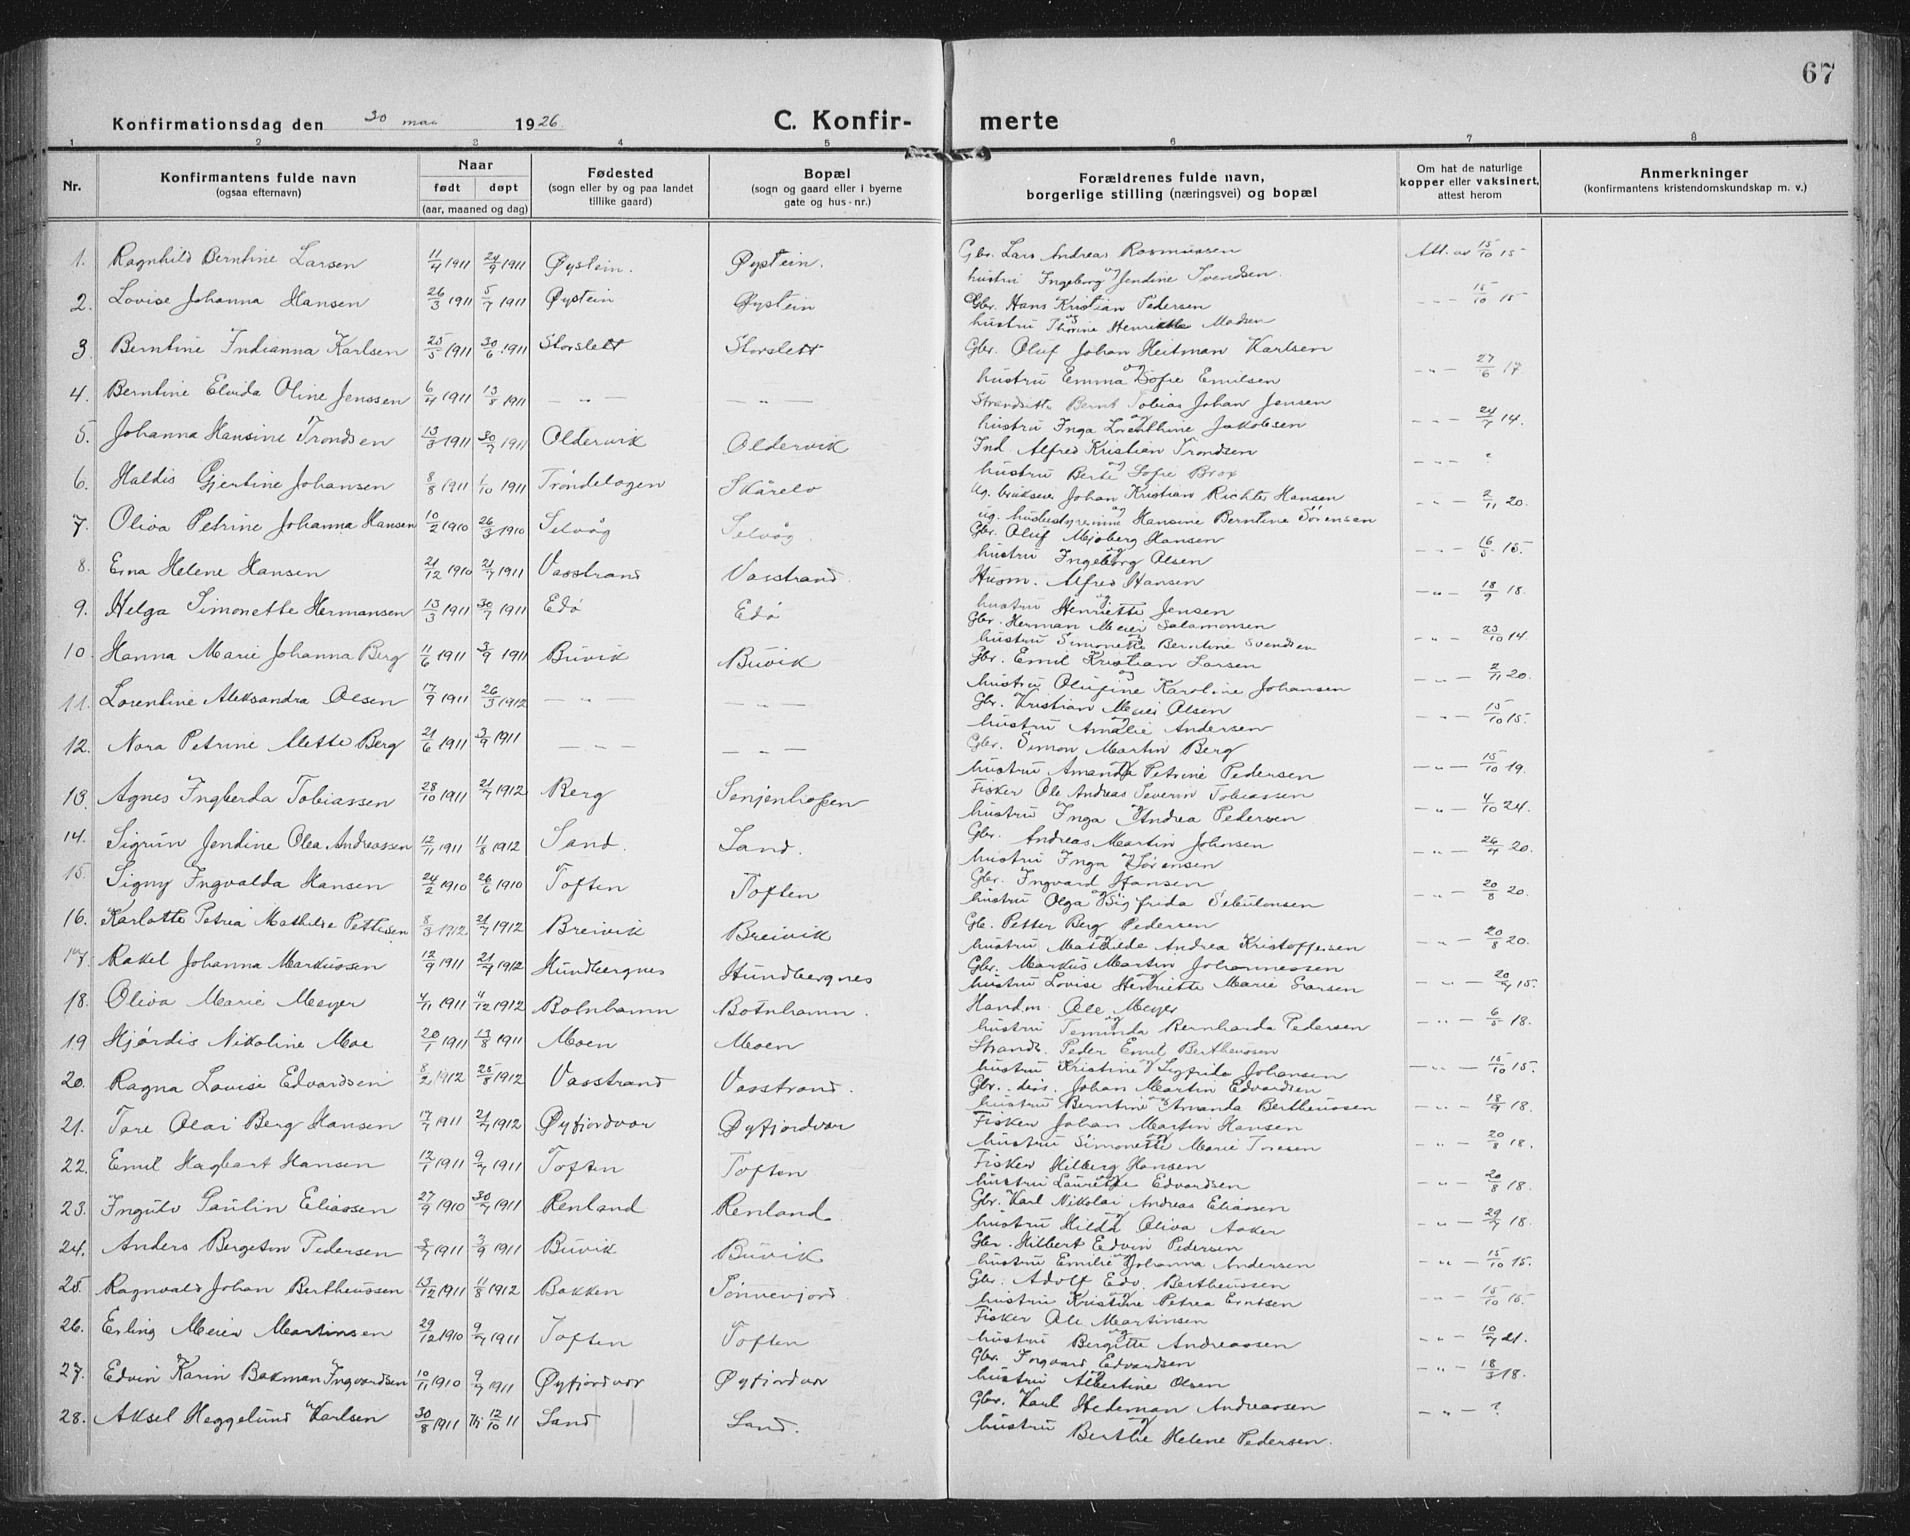 67
Konfirmationsdag den 30 mai 1926. C. Konfir- merte
1 2 3 4 5 6 7 8
Nr. Konfirmantens fulde navn (ogsaa efternavn) Naar født døpt (aar, maaned og dag) Fødested (sogn eller by og paa landet tillike gaard) Bopæl (sogn og gaard eller i byerne gate og hus-nr.) Forældrenes fulde navn, borgerlige stilling (næringsvei) og bopæl Om hat de naturlige kopper eller vaksinert, attest herom Anmerkninger (konfirmantens kristendomskundskap m. v.)
1. Ragnhild Berntine Larsen 11/4 1911 24/9 1911 Øystein. Øystein. Gbr. Lars Andreas Rasmussen Att. av 15/10 15
hustru Ingeborg og Jendine Svendsen.
2. Lovise Johanna Hansen 26/3 1911 5/7 1911 Øystein Øystein Gbr. Hans Kristian Pedersen - " - 15/10 15
hustru Thorine og Henrikke Madsen
3. Berntine Indianna Karlsen 25/5 1911 30/6 1911 Storslett Storslett Gbr. Oluf Johan Heitman Karlsen
hustru Emma og Sofie Emilsen - " - 27/6 17.
4. Berntine Elvida Oline Jenssen 6/4 1911 13/8 1911 - " - - " - Strandsitter Bernt Tobias Johan Jensen
hustru Inga og Lorenthine Jakobsen - " - 24/7 14.
5. Johanna Hansine Trondsen 13/3 1911 30/7 1911 Oldervik Oldervik Ind. Alfred Kristian Trondsen - " - ?
hustru Berte og Sofie Brox
6. Haldis Gjertine Johansen 8/8 1911 1/10 1911 Trøndelagen Skårelv Ug. bruкseier Johan Kristian Richter Hansen - " - 2/11 20.
ug. husbestyrerinne og Hansine Berntine Sörensen
7. Oliva Petrine Johanna Hansen 10/2 1910 26/3 1910 Selvåg Selvåg. Gbr. Oluf Mejberg Hansen - " - 16/5 15.
hustru og Ingeborg Olsen
8. Erna Helene Hansen 21/12 1910 21/7 1911 Vasstrand Vasstrand. Husm. Alfred Hansen - " - 18/9 18.
hustru og Henriette Jensen
9. Helga Simonette Hermansen 13/3 1911 30/7 1911 Edø Edø Gbr. Herman Meier Salamonsen - " - 23/10 14.
hustru Simonette og Berntine Svendsen
10. Hanna Marie Johanna Berg 11/6 1911 3/9 1911 Buvik Buvik Gbr. Emil Kristian Larsen - " - 2/11 20.
hustru Olufine og Karoline Johansen
11. Lorentine Aleksandra Olsen 17/9 1911 26/3 1912 - " - - " - Gbr. Kristian Meier Olsen - " - 15/10 15.
hustru og Amalie Andersen
12. Nora Petrine Alette Berg 21/6 1911 3/9 1911 - " - - " - Gbr. Simon Martin Berg
hustru Amanda og Petrine Pedersen - " - 15/10 19.
13. Agnes Ingberda Tobiassen 28/10 1911 21/7 1912 Berg Senjenhopen Fisker Ole Andreas Severin Tobiassen
hustru Inga og Andrea Pedersen - " - 4/10 24.
14. Sigrun Jendine Olea Andreassen 12/11 1911 11/8 1912 Sand. Sand. Gbr. Andreas Martin Johnsen
hustru Inga og Sörensen - " - 26/4 20.
15. Signy Ingvalda Hansen 24/2 1910 26/6 1910 Toften Toften Gbr. Ingvard Hansen
hustru Olga og Sigfrida Sebulonsen - " - 20/8 20.
16. Karlotte Petrea Mathilde Pettersen 8/3 1912 21/7 1912 Breivik Breivik Gb. Petter Berg Pedersen
hustru Mathilde og Andrea Kristoffersen - " - 20/8 20.
17. Rakel Johanna Markussen 12/9 1911 21/7 1912 Hundbergnes Hundbergnes Gbr. Markus Martin Johannessen
hustru Lovise og Henriette Marie Larsen - " - 20/7 15.
18. Oliva Marie Meyer 4/11 1911 4/12 1912 Botnhamn Botnhamn. Handm. Ole Meyer
hustru og Teminda Bernharda Pedersen - " - 6/5 18.
19 Hjørdis Nikoline Moe 20/1 1911 13/8 1911 Moen Moen Strands. Peder Emil Bertheussen
hustru Kristine og Sigfrida Johansen - " - 15/10 15.
20. Ragna Lovise Edvardsen 8/2 1912 25/8 1912 Vasstrand Vasstrand. Gbr. Johan Martin Edvardsen
hustru Berntine og Amanda Bertheussen - " - 18/9 18.
21. Tore Olai Berg Hansen 17/7 1911 21/7 1912 Øyfjordvær Øyfjordvær Fisker Johan Martin Hansen
hustru Simonette og Marie Toresen - " - 20/8 18.
22. Emil Hagbart Hansen 12/1 1911 9/7 1911 Toften Toften Fisker Hilberg Hansen
hustru Lauritze og Edvardsen - " - 20/8 18.
23. Ingulv Paulin Eliassen 27/9 1910 30/7 1911 Renland Renland. Gbr. Karl Nikolai Andreas Eliassen
hustru Hilda og Oliva Aaker - " - 29/7 18.
24. Anders Bergeton Pedersen 3/7 1911 3/9 1911 Buvik Buvik Gbr. Hilbert Edvin Pedersen
hustru Emilie og Johanna Andersen - " - 15/10 15.
25. Ragnvald Johan Bertheussen 13/12 1911 11/8 1912 Bakken Sønnevjord. Gbr. Adolf Edv. Bertheussen
hustru Kristine og Petrea Erntsen - " - 15/10 15.
26. Erling Meier Martinsen 29/12 1910 9/7 1911 Toften Toften Fisker Ole Martinsen
hustru og Bergitte Andreassen - " - 10/7 21.
27. Edvin Karin Bakman Ingvardsen 10/11 1910 9/7 1911 Øyfjordvær Øyfjordvær Gbr. Ingvard Edvardsen
hustru og Albertine Olsen - " - 18/3 18.
28. Aksel Heggelund Karlsen 30/8 1911 Hj 12/10 11 Sand Sand. Gbr. Karl Hedeman Andreassen - " - ?
hustru og Berthe Helene Pedersen.